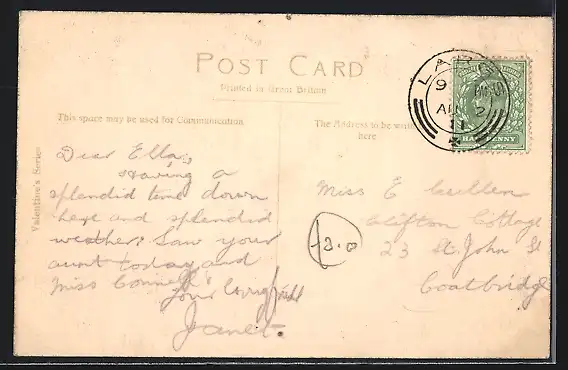 POST CARD
Printed in Great Britain
This space may be used for Communication.
The Address to be written
here
Valentine's Series
LARGS
9
2
11
HALFPENNY
Dear Ella,
Having a
splendid time down
here and splendid
weather. Saw your
aunt today and
Miss Connell
Your loving friend
Janet.
Miss E Cullen
Clifton Cottage
23 St. John St
Coatbridge